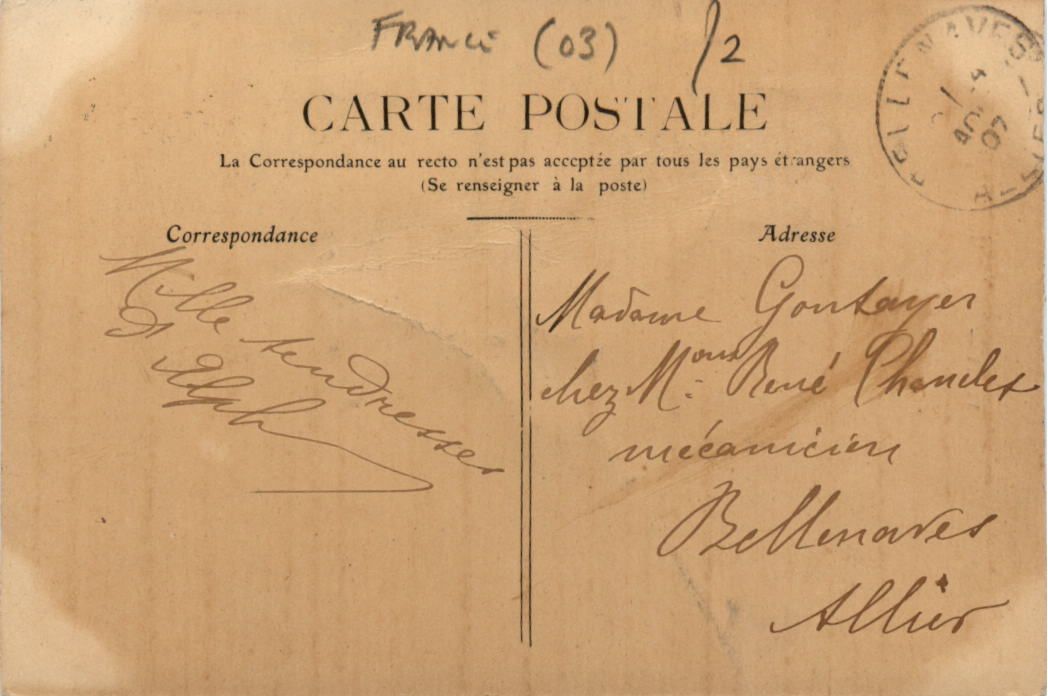 FRANCE (03) /2
CARTE POSTALE
La Correspondance au recto n'est pas acceptée par tous les pays étrangers
(Se renseigner à la poste)
BELLENAVES
AOUT
07
ALLIER
Correspondance
Mille tendresses
Alph
Adresse
Madame Gontayer
chez Mous René Chandet
mécanicien
Bellenaves
Allier